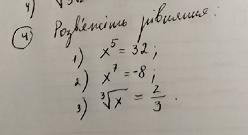 4) Розв'яжіть рівняння:
1) x⁵ = 32;
2) x⁷ = -8;
3) ∛x = 2/3.